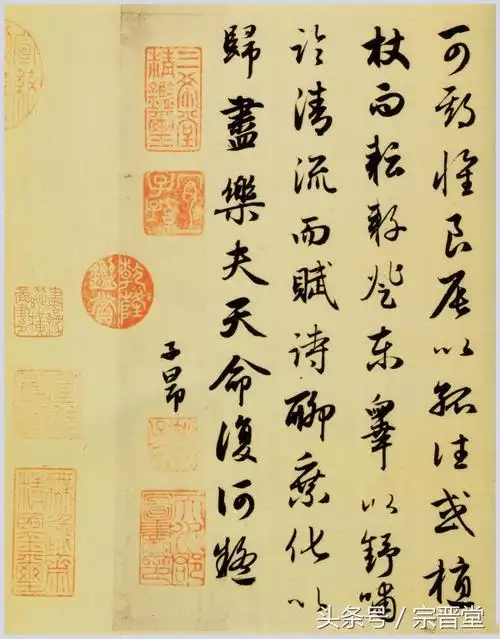 可期懷良辰以孤往或植
杖而耘耔登東皋以舒嘯
臨清流而賦詩聊乘化以
歸盡樂夫天命復何疑
子昂
三希堂精鑑璽
宜子孫
頭条号 / 宗晋堂